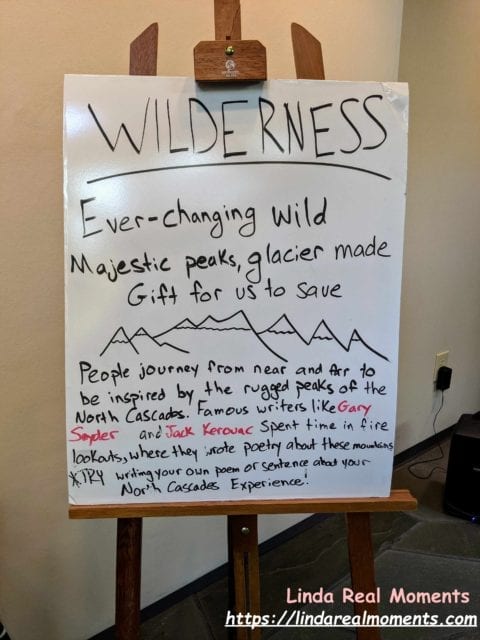 WILDERNESS
Ever-changing wild
Majestic peaks, glacier made
Gift for us to save
People journey from near and far to
be inspired by the rugged peaks of the
North Cascades. Famous writers like Gary
Snyder and Jack Kerouac spent time in fire
lookouts, where they wrote poetry about these mountains
*TRY writing your own poem or sentence about your
North Cascades Experience!
Linda Real Moments
https://lindarealmoments.com